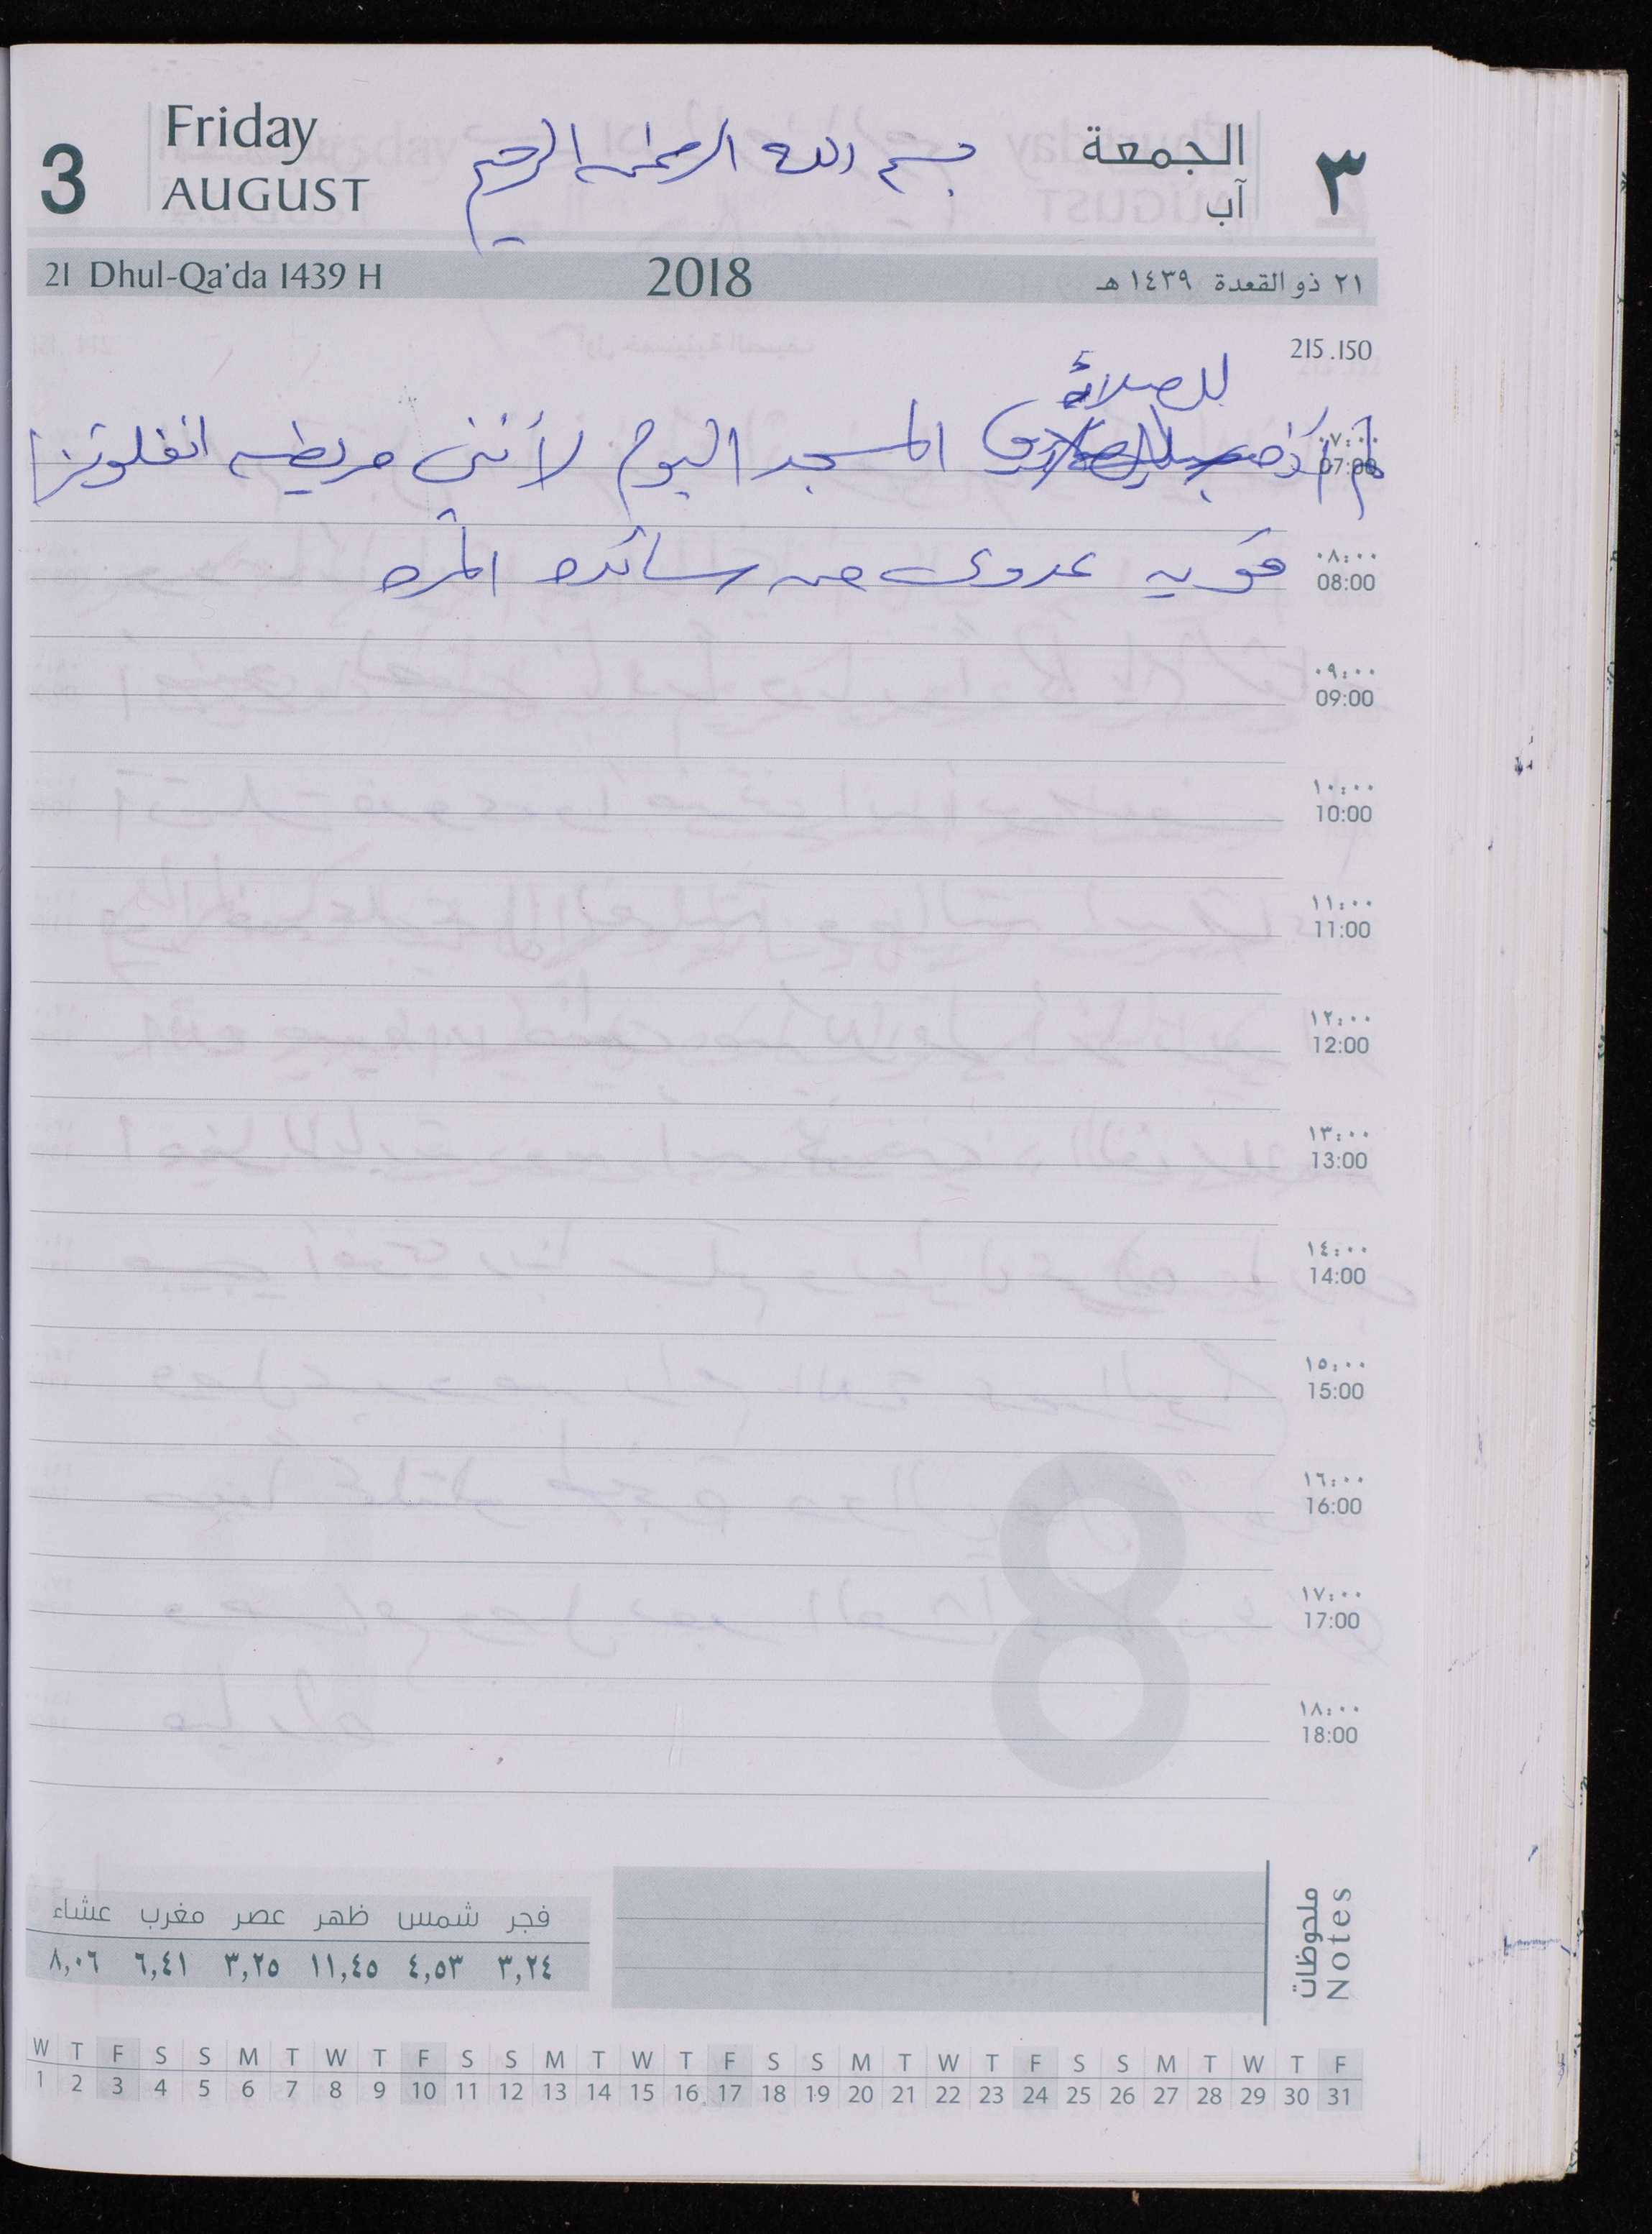 3
Friday
AUGUST
بسم الله الرحمن الرحيم
الجمعة
آب
٣
21 Dhul-Qa'da 1439 H
2018
٢١ ذو القعدة ١٤٣٩ هـ
215.150
للصلاة
لم أذهب المسجد اليوم لأنني مريضه انفلونزا
٠٧:٠٠
07:00
قويه عدوى من ساكنه
٠٨:٠٠
08:00
٠٩:٠٠
09:00
١٠:٠٠
10:00
١١:٠٠
11:00
١٢:٠٠
12:00
١٣:٠٠
13:00
١٤:٠٠
14:00
١٥:٠٠
15:00
١٦:٠٠
16:00
١٧:٠٠
17:00
١٨:٠٠
18:00
8
ملحوظات
Notes
فجر شمس ظهر عصر مغرب عشاء
٣,٢٤ ٤,٥٣ ١١,٤٥ ٣,٢٥ ٦,٤١ ٨,٠٦
W T F S S M T W T F S S M T W T F S S M T W T F S S M T W T F
1 2 3 4 5 6 7 8 9 10 11 12 13 14 15 16 17 18 19 20 21 22 23 24 25 26 27 28 29 30 31